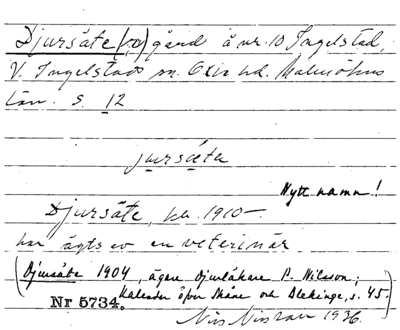 Djursäte (10) gård å nr. 10 Ingelstad,
V. Ingelstads sn. Oxie hd. Malmöhus
län. s. 12
jursäta
Nytt namn!
Djursäte, bl. 1910-
har ägts av en veterinär
(Djursäte 1904, ägare Djurläkare P. Nilsson;
Kalender öfver Skåne och Blekinge, s. 45.)
Nr 5734.
Nils Nilsson 1936.